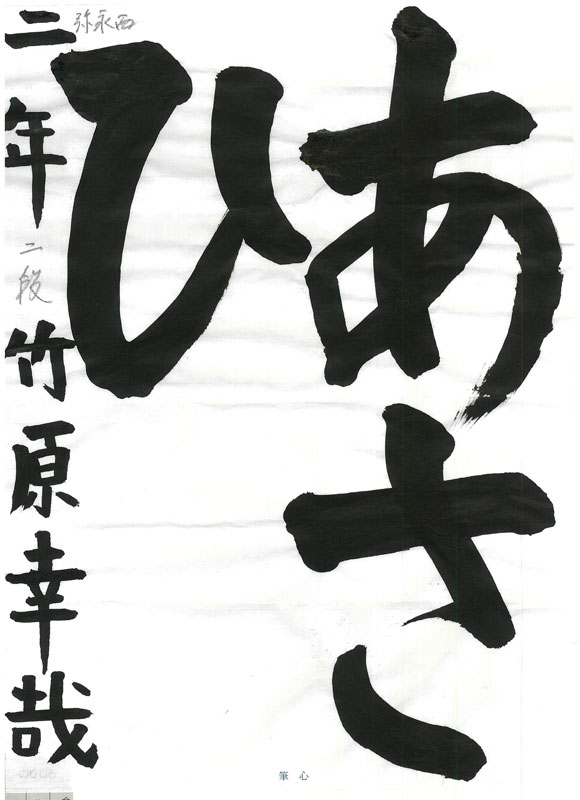 あさ
ひ
弥永西
二年 二段 竹原幸哉
のりしろ
筆心